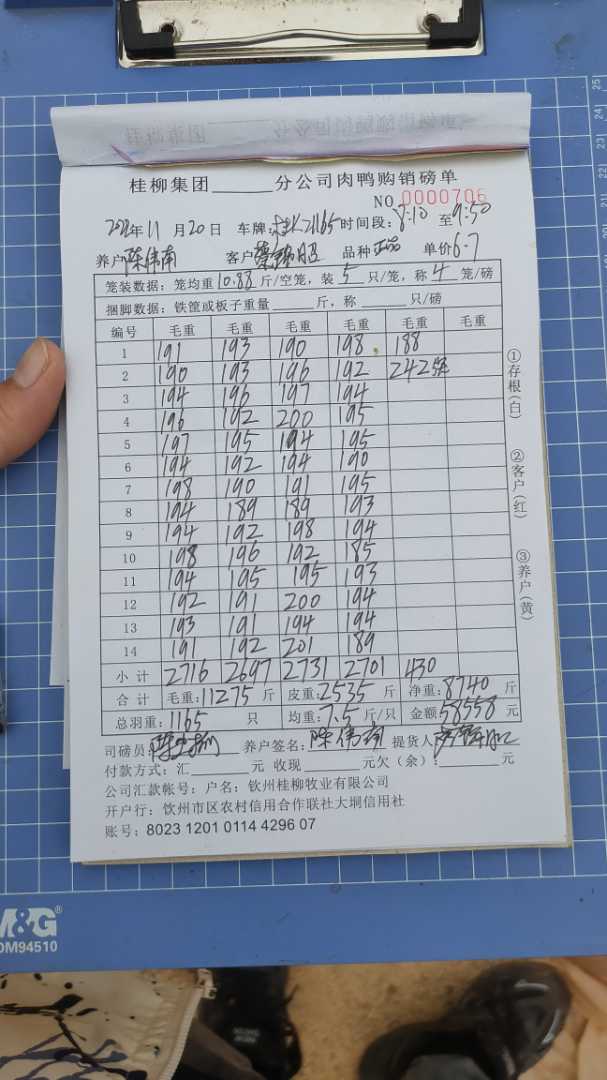 桂柳集团______分公司肉鸭购销磅单
NO 0000706
年11月20日 车牌: 21165 时间段:8:10至9:50
养户 陈伟南 客户 品种 正品 单价6.7
笼装数据: 笼均重10.88斤/空笼, 装5只/笼, 称4笼/磅
捆脚数据: 铁筐或板子重量______斤, 称______只/磅
编号 毛重 毛重 毛重 毛重 毛重 毛重
1 191 193 190 198 188
2 190 193 196 192 242
3 194 196 197 194
4 196 192 200 195
5 197 195 194 195
6 194 192 194 190
7 198 190 191 195
8 194 189 189 193
9 194 192 198 194
10 198 196 192 185
11 194 195 195 193
12 192 191 200 194
13 193 191 194 194
14 191 192 201 189
小计 2716 2697 2731 2701 430
合计 毛重:11275斤 皮重:2535斤 净重:8740斤
总羽重:1165只 均重:7.5斤/只 金额:58558元
司磅员: 养户签名: 陈伟南 提货人
付款方式: 汇______元 收现______元欠(余):______元
公司汇款帐号: 户名: 钦州桂柳牧业有限公司
开户行: 钦州市区农村信用合作联社大垌信用社
账号: 8023 1201 0114 4296 07
①存根(白)
②客户(红)
③养户(黄)
M&G®
DM94510
25
24
23
22
21